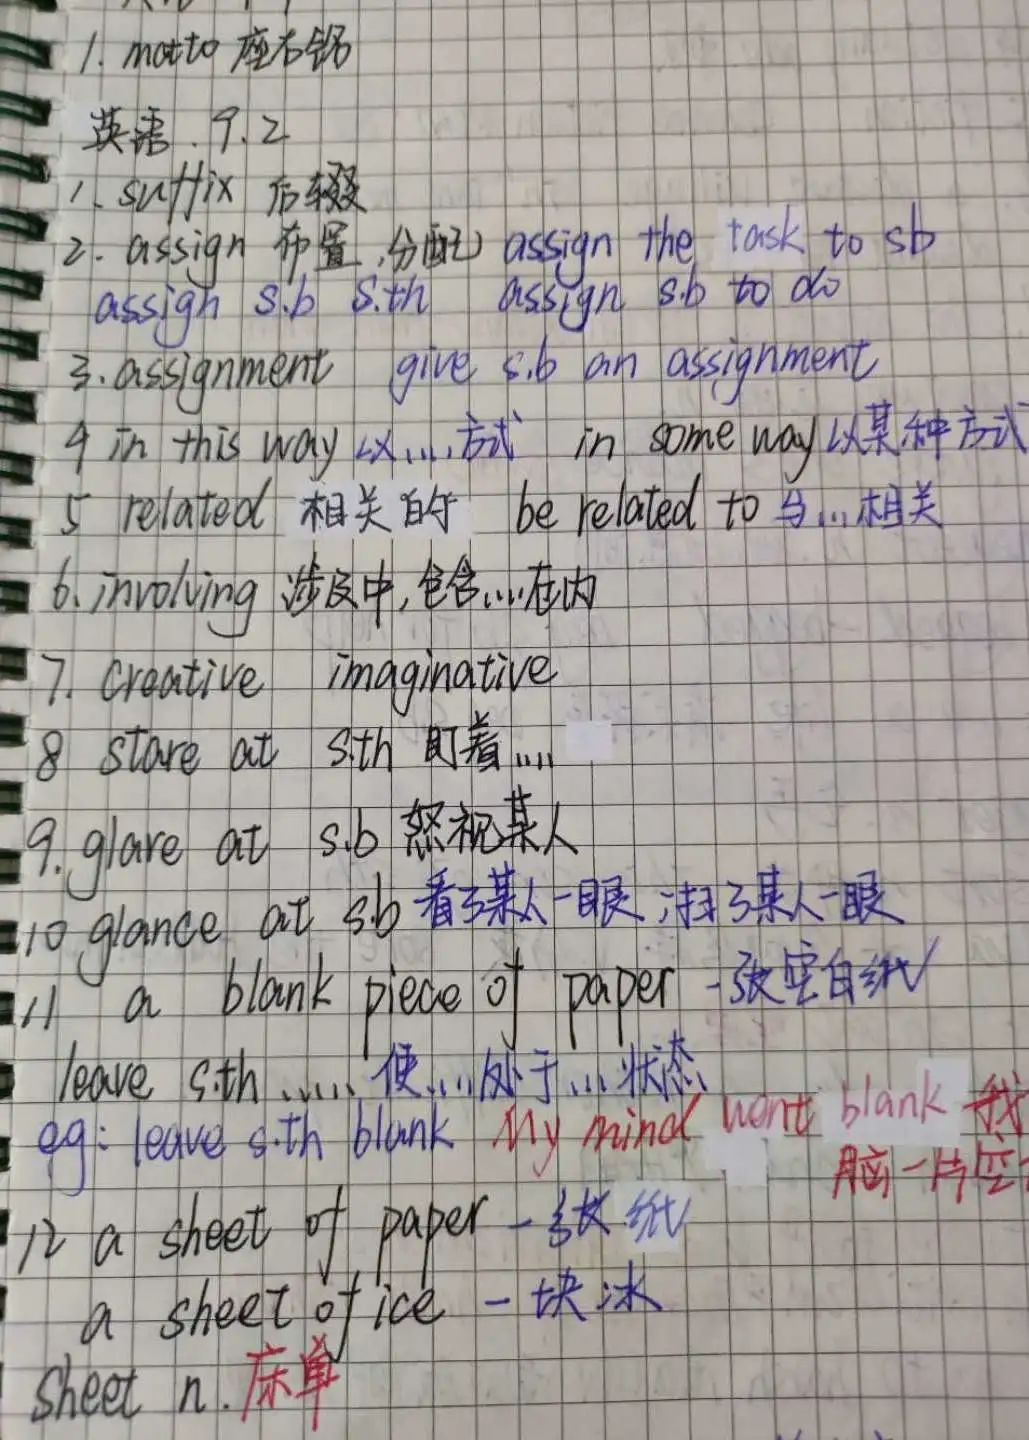 1. motto 座右铭
英语. 9.2
1. suffix 后缀
2. assign 布置,分配 assign the task to sb
assign s.b s.th assign s.b to do
3. assignment give s.b an assignment
4 in this way 以....方式 in some way 以某种方式
5 related 相关的 be related to 与...相关
6. involving 涉及中,包含....在内
7. creative imaginative
8 stare at s.th 盯着....
9. glare at s.b 怒视某人
10 glance at s.b 看了某人一眼,扫了某人一眼
11 a blank piece of paper 一张空白纸
leave s.th ..... 使....处于...状态
eg: leave s.th blank My mind went blank 我
脑一片空
12 a sheet of paper 一张纸
a sheet of ice 一块冰
sheet n. 床单